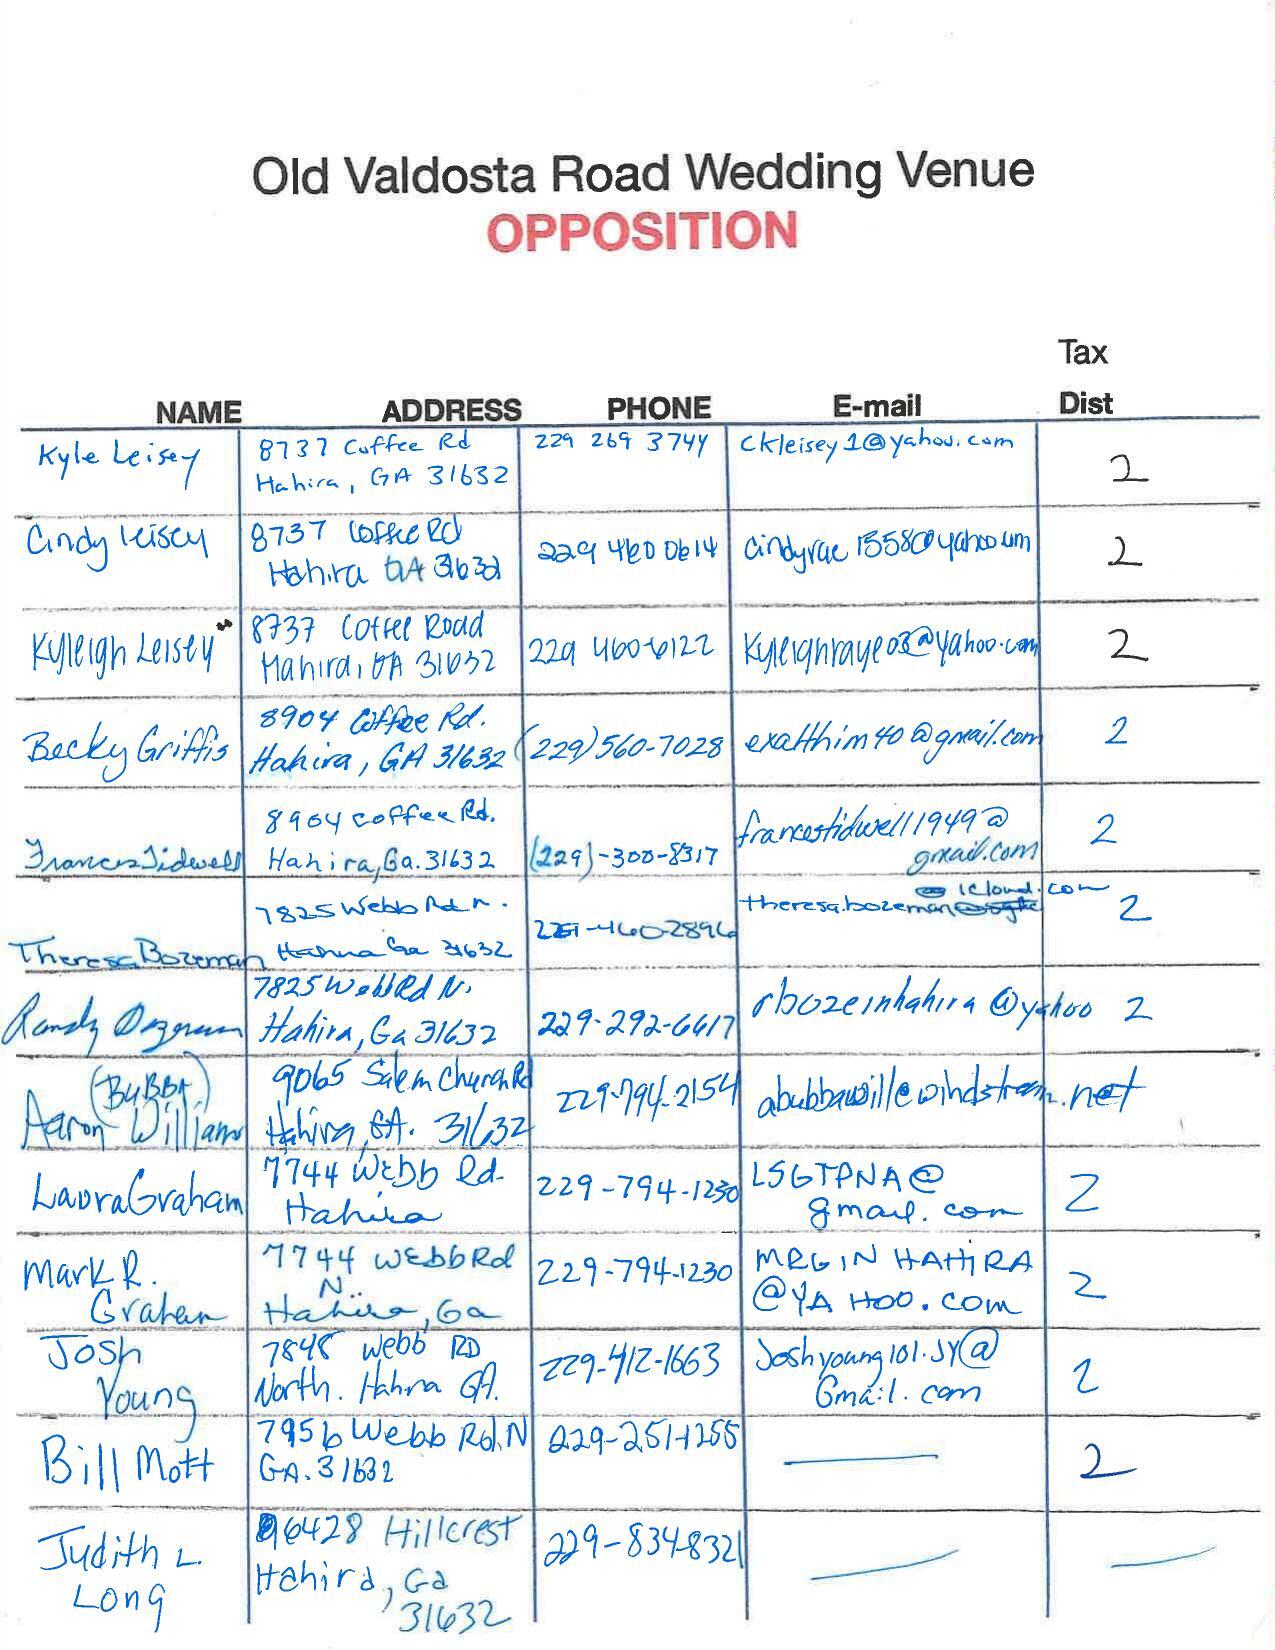 Old Valdosta Road Wedding Venue
OPPOSITION
Tax
NAME ADDRESS PHONE E-mail Dist
Kyle Leisey 8737 Coffee Rd 229 269 3744 ckleisey1@yahoo.com 2
Hahira, GA 31632
Cindy Leisey 8737 Coffee Rd 229 460 0614 2
Hahira GA 31632
Kyleigh Leisey 8737 Coffee Road 229 460-6122 Kyleighraye03@yahoo.com 2
Hahira, GA 31632
Becky Griffis 8904 Coffee Rd. (229)560-7028 exalthim40@gmail.com 2
Hahira, GA 31632
Frances Tidwell 8904 Coffee Rd. (229)-300-8317 francestidwell1949@ 2
Hahira, Ga. 31632 gmail.com
Theresa Bozeman 7825 Webb Rd n. 229-460-2896 theresa.bozeman@icloud.com 2
Hahira Ga 31632
Randy Bozeman 7825 Webb Rd N. 229-292-6617 rbozeinhahira@yahoo 2
Hahira, Ga 31632
(BUBBA) 9065 Salem Church Rd 229-794-2154 abubbawill@windstream.net
Aaron Williams Hahira, GA. 31632
Laura Graham 7744 Webb Rd. 229-794-1230 LSGTPNA@ 2
Hahira gmail.com
Mark R. 7744 Webb Rd 229-794-1230 MRGINHAHIRA 2
Graham N. @YAHOO.COM
Hahira, Ga
Josh 7848 Webb RD 229-412-1663 Joshyoung101.JY@ 2
Young North. Hahira GA. Gmail.com
Bill Mott 7956 Webb Rd. N 229-251-1255 — 2
GA. 31632
Judith L. 6428 Hillcrest 229-834-8321 — —
Long Hahira, Ga
31632